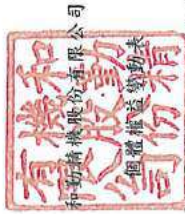 和勤精機股份有限公司
個體權益變動表
和勤精
機股份
有限公司